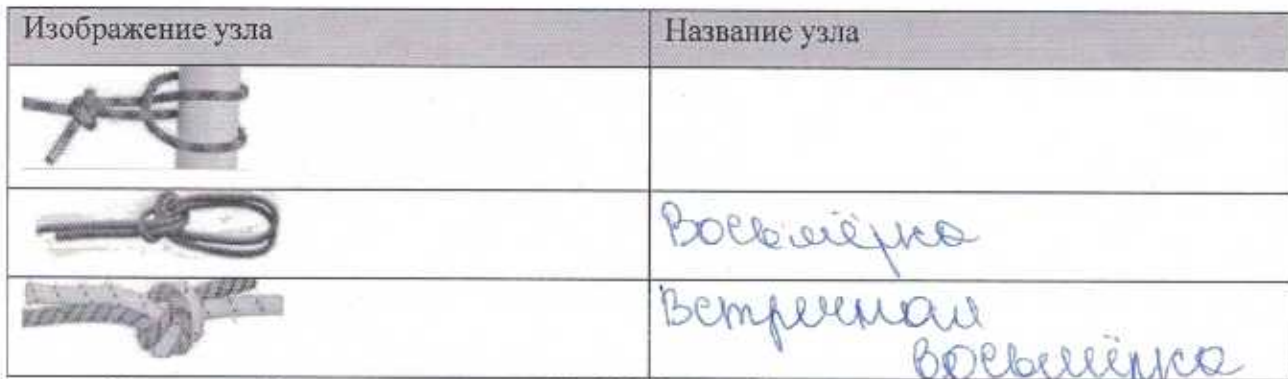 Изображение узла
Название узла
Восьмёрка
Встречная
восьмёрка